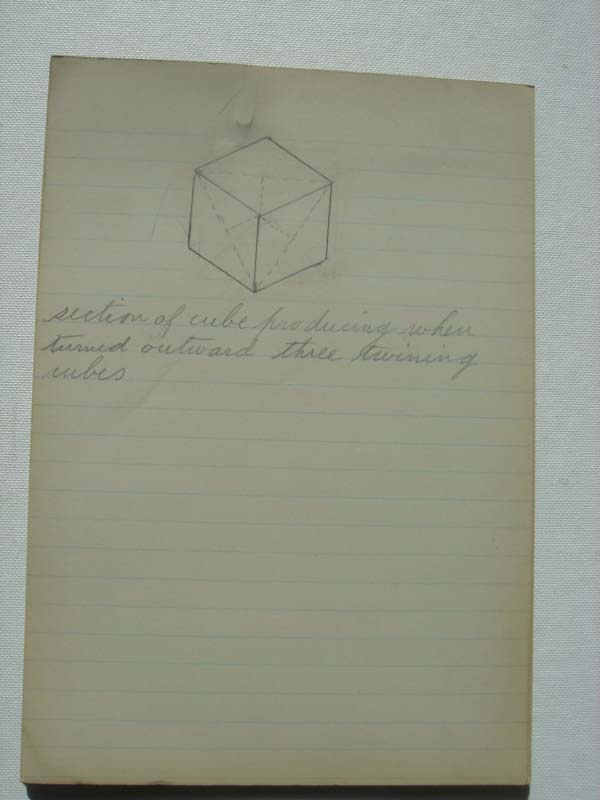 section of cube producing when
turned outward three twining
cubes